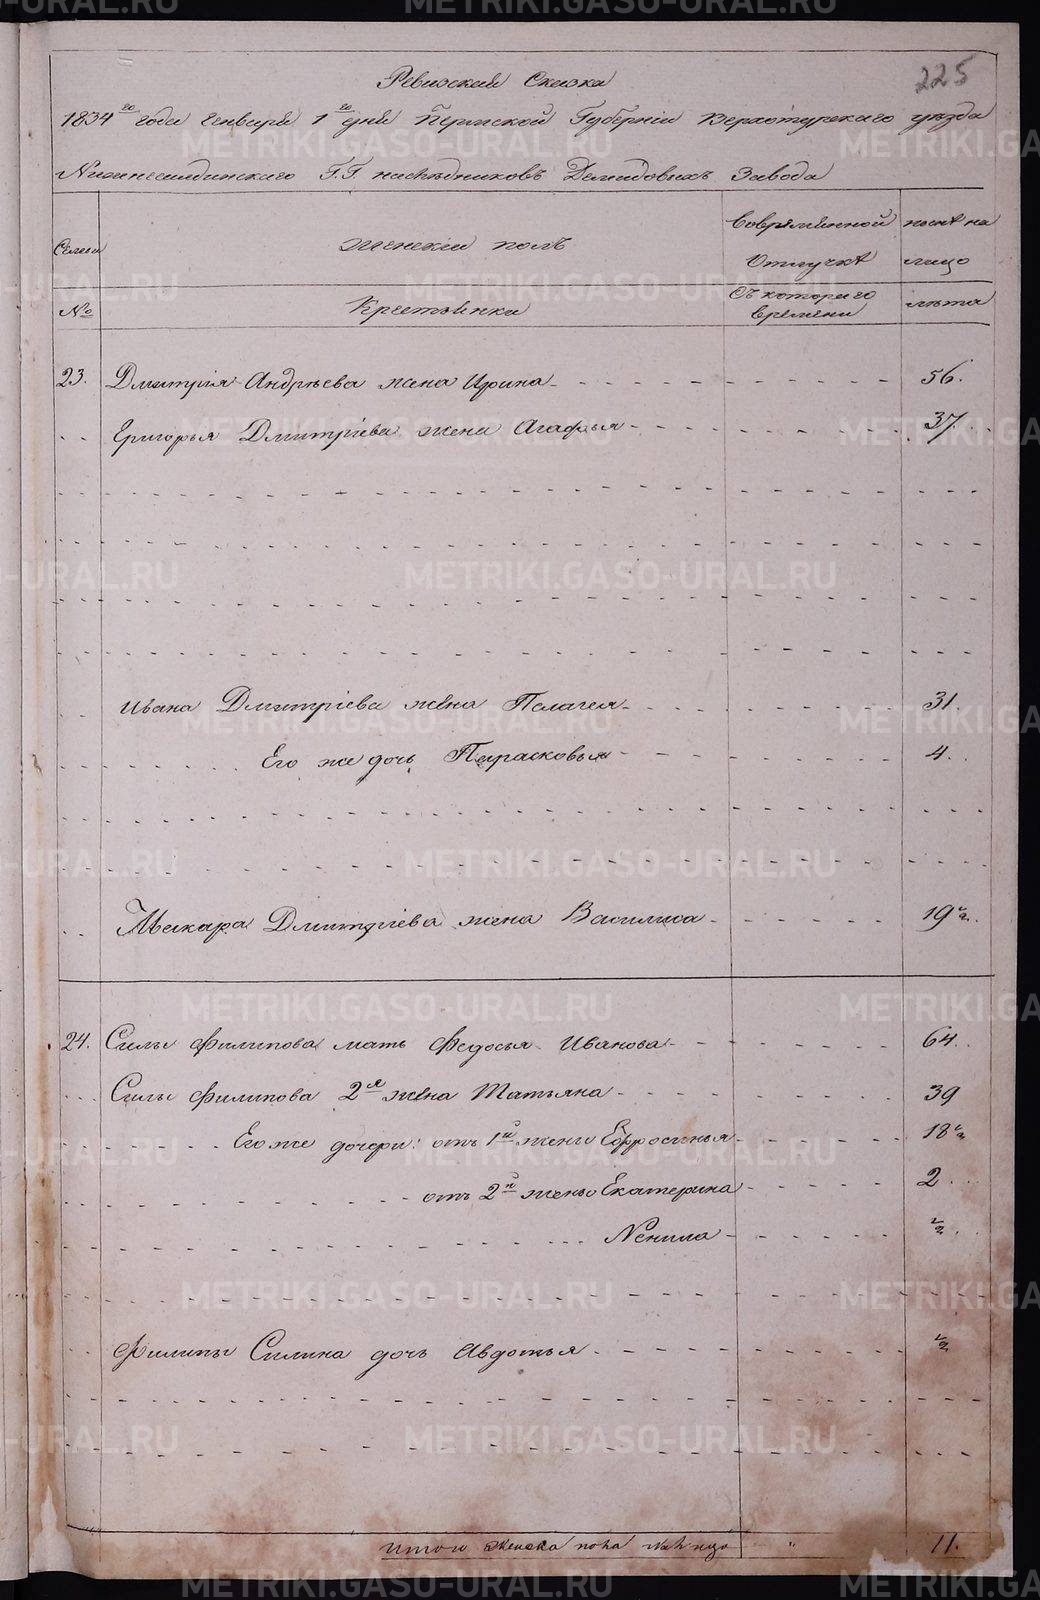 225
Ревизская Сказка
1834го года Генваря 1го дня Пермской Губернiи Верхотурскаго уѣзда
Нижнесалдинскаго Г.Г. наслѣдниковъ Демидовыхъ Завода
Семьи
Женскiй полъ
Во врѣмѣнной отлучкѣ
нынѣ на лицо
№
Крестьянки
Съ котораго времѣни
лѣта
23. Дмитрiя Андрѣева жена Ирина 56.
Григорья Дмитрiева жена Агафья 37.
Ивана Дмитрiева жена Пелагея 31.
Его же дочь Парасковья 4.
Макара Дмитрiева жена Василиса 19½.
24. Силы Филипова мать Федосья Иванова 64.
Силы Филипова 2я жена Татьяна 39
Его же дочери: отъ 1й жены Ефросинья 18½
отъ 2й жены Екатерина 2
Ненила ½.
Филипы Силина дочь Авдотья ½
Итого женска пола на лицо " 11.
METRIKI.GASO-URAL.RU